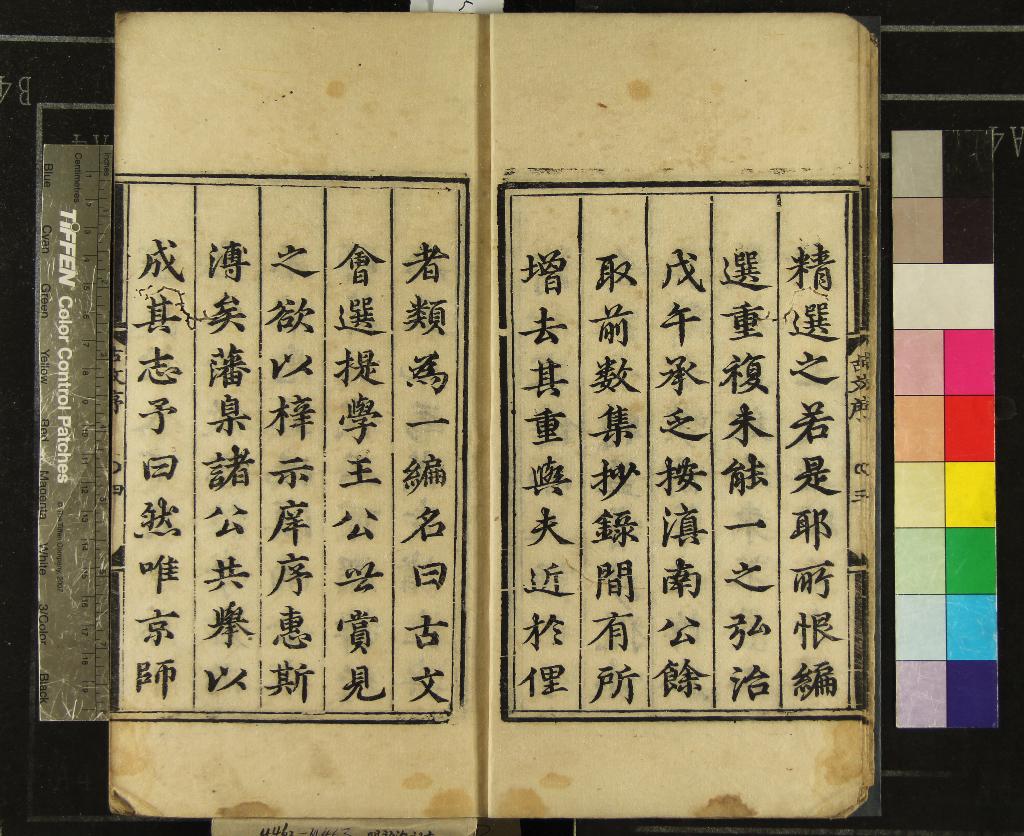 精選之若是耶所恨編
選重複未能一之弘治
戊午承乏按滇南公餘
取前数集抄錄間有所
增去其重與夫近於俚
者類為一編名曰古文
會選提學王公㫒賞見
之欲以梓示庠序惠斯
溥矣藩臬諸公共舉以
成其志予曰然唯京師
TIFFEN Color Control Patches
Blue Cyan Green Yellow Red Magenta White 3/Color Black
Centimetres
Inches
B4
A4